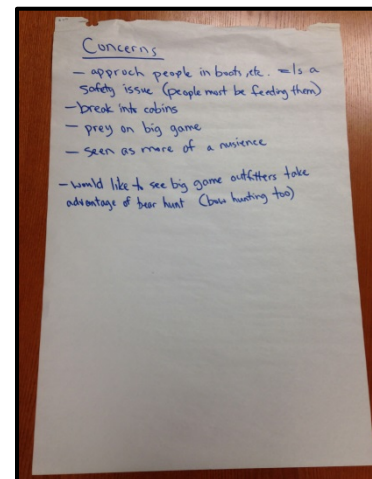 Concerns
- approch people in boats, etc. = Is a
safety issue (people must be feeding them)
- break into cabins
- prey on big game
- seen as more of a nusience
- would like to see big game outfitters take
advantage of bear hunt (bow hunting too)